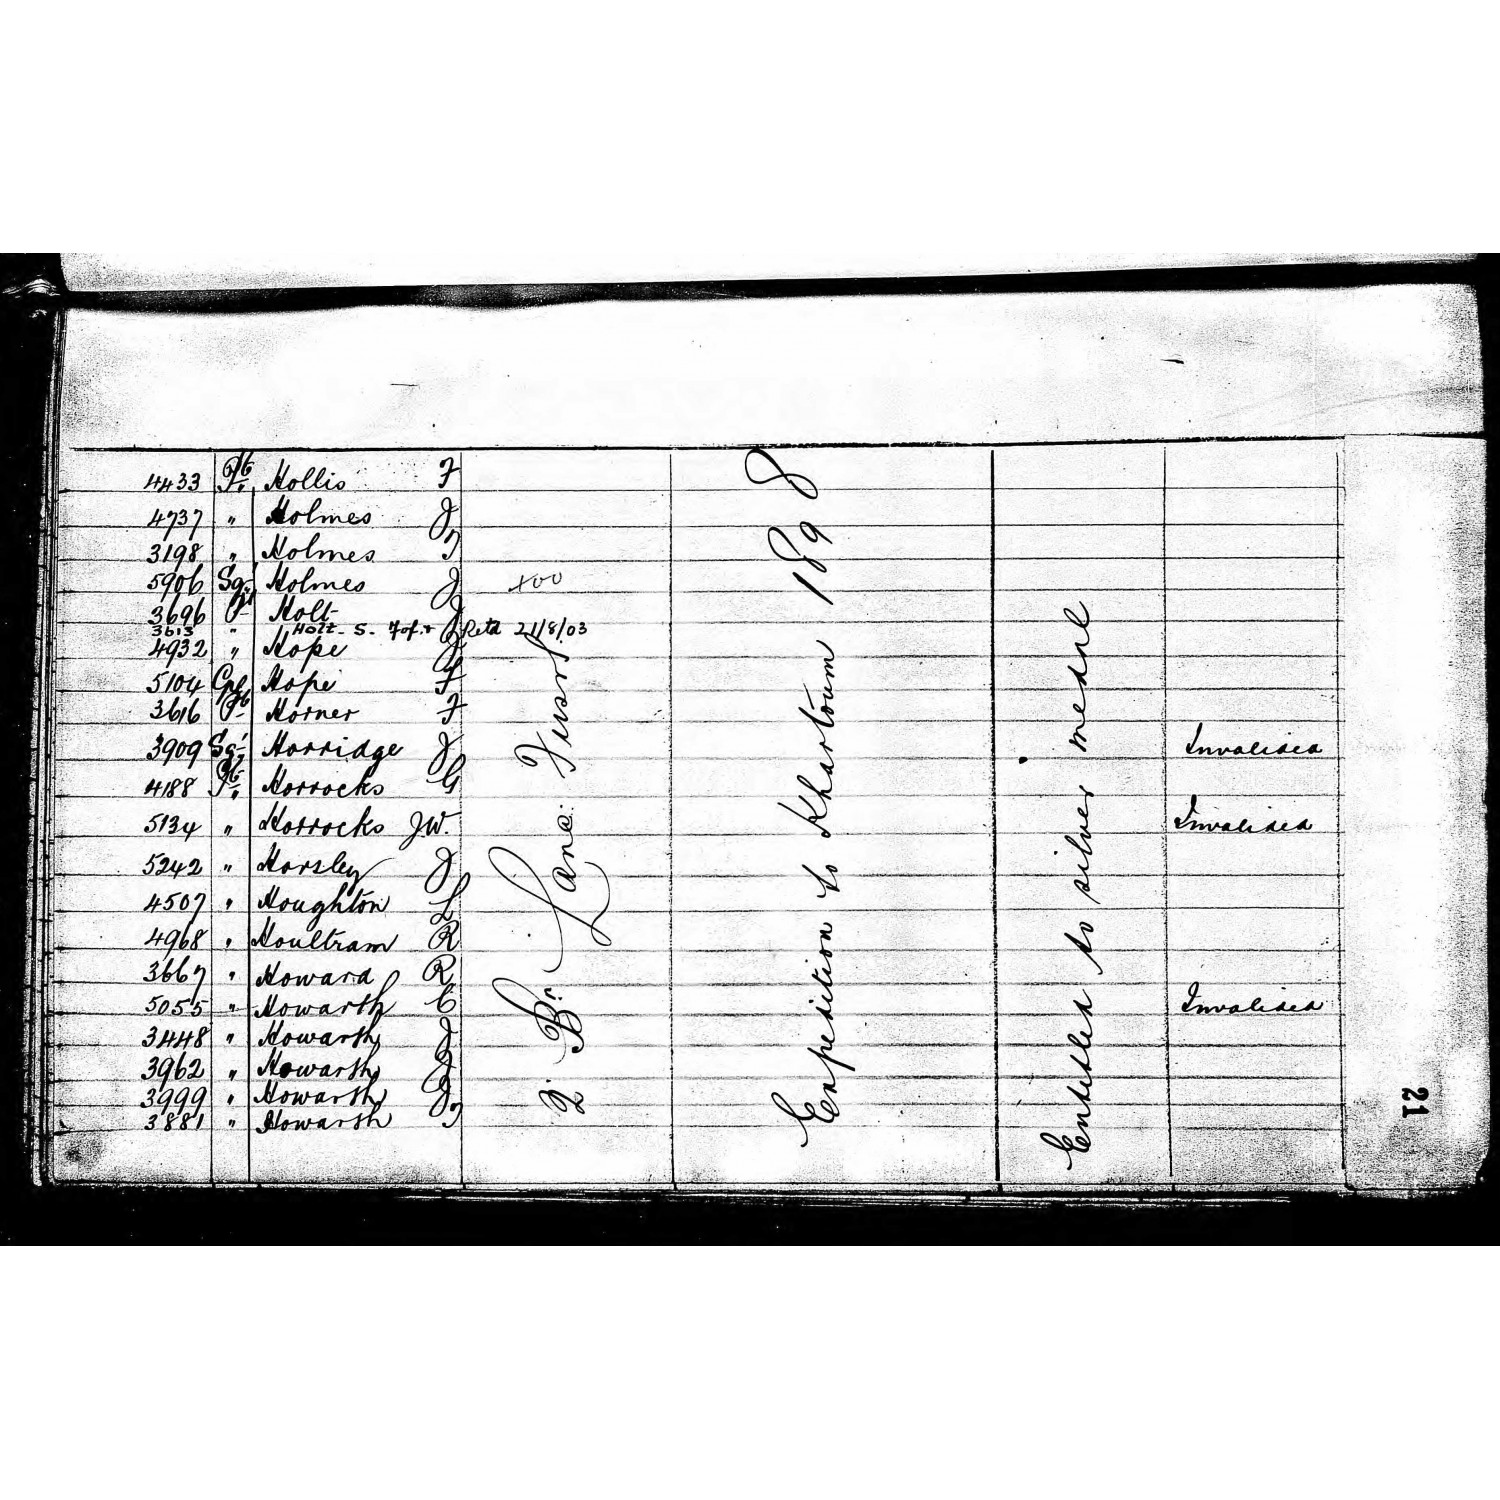 4433 Pte. Hollis F
4737 " Holmes J
3198 " Holmes T
5906 Sgt. Holmes J
3696 Pte Holt J
3613 " Holt S. Retd 21/8/03
4932 " Hope J
5104 Cpl Hope F
3616 Pte Horner F
3909 Sgt Horridge J Invalided
4188 Pte. Horrocks G
5134 " Horrocks J.W. Invalided
5242 " Horsley J
4507 " Houghton L
4968 " Houltram R
3667 " Howard R
5055 " Howarth C Invalided
3448 " Howarth J
3962 " Howarth J
3999 " Howarth J
3881 " Howarth T
2. Bn Lanc: Fusrs.
Expedition to Khartoum 1898
Entitled to silver medal
21